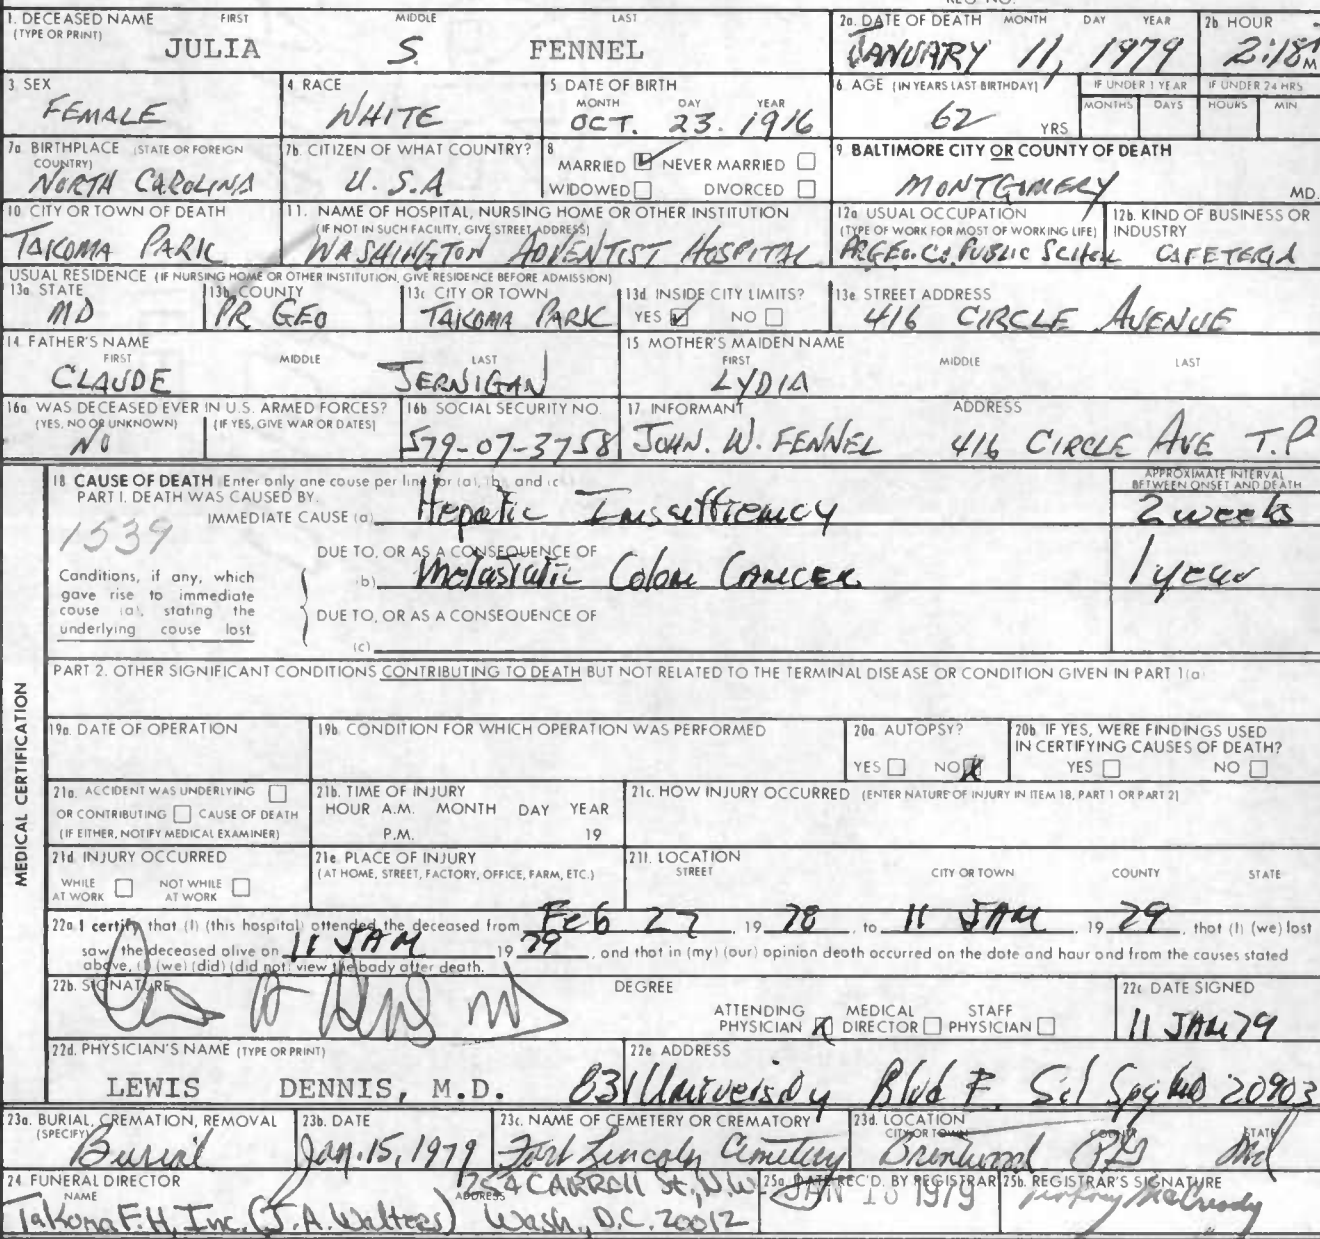 REG. NO.
1. DECEASED NAME FIRST MIDDLE LAST
(TYPE OR PRINT)
JULIA S. FENNEL
2a. DATE OF DEATH MONTH DAY YEAR
JANUARY 11, 1979
2b HOUR
2:18 M
3. SEX
FEMALE
4. RACE
WHITE
5 DATE OF BIRTH
MONTH DAY YEAR
OCT. 23. 1916
6. AGE (IN YEARS LAST BIRTHDAY)
62 YRS
IF UNDER 1 YEAR
MONTHS DAYS
IF UNDER 24 HRS
HOURS MIN
7a. BIRTHPLACE (STATE OR FOREIGN
COUNTRY)
NORTH CAROLINA
7b. CITIZEN OF WHAT COUNTRY?
U.S.A
8
MARRIED NEVER MARRIED
WIDOWED DIVORCED
9. BALTIMORE CITY OR COUNTY OF DEATH
MONTGOMERY MD.
10. CITY OR TOWN OF DEATH
TAKOMA PARK
11. NAME OF HOSPITAL, NURSING HOME OR OTHER INSTITUTION
(IF NOT IN SUCH FACILITY, GIVE STREET ADDRESS)
WASHINGTON ADVENTIST HOSPITAL
12a. USUAL OCCUPATION
(TYPE OF WORK FOR MOST OF WORKING LIFE)
PR.GEO. CO. PUBLIC
12b. KIND OF BUSINESS OR
INDUSTRY
CAFETERIA
USUAL RESIDENCE (IF NURSING HOME OR OTHER INSTITUTION, GIVE RESIDENCE BEFORE ADMISSION)
13a. STATE
MD
13b. COUNTY
PR GEO
13c CITY OR TOWN
TAKOMA PARK
13d. INSIDE CITY LIMITS?
YES NO
13e STREET ADDRESS
416 CIRCLE AVENUE
14. FATHER'S NAME
FIRST MIDDLE LAST
CLAUDE JERNIGAN
15 MOTHER'S MAIDEN NAME
FIRST MIDDLE LAST
LYDIA
16a. WAS DECEASED EVER IN U.S. ARMED FORCES?
(YES, NO OR UNKNOWN) (IF YES, GIVE WAR OR DATES)
NO
16b SOCIAL SECURITY NO.
579-07-3758
17 INFORMANT ADDRESS
JOHN. W. FENNEL 416 CIRCLE AVE T.P
18 CAUSE OF DEATH Enter only one cause per line for (a), (b), and (c
PART I. DEATH WAS CAUSED BY.
IMMEDIATE CAUSE (a) Hepatic Insufficiency
APPROXIMATE INTERVAL
BETWEEN ONSET AND DEATH
2 weeks
1539
DUE TO, OR AS A CONSEQUENCE OF
(b) Metastatic Colon Cancer
1 year
Conditions, if any, which
gave rise to immediate
cause (a), stating the
underlying cause last
DUE TO, OR AS A CONSEQUENCE OF
(c)
PART 2. OTHER SIGNIFICANT CONDITIONS CONTRIBUTING TO DEATH BUT NOT RELATED TO THE TERMINAL DISEASE OR CONDITION GIVEN IN PART 1(a)
MEDICAL CERTIFICATION
19a. DATE OF OPERATION
19b. CONDITION FOR WHICH OPERATION WAS PERFORMED
20a. AUTOPSY?
YES NO
20b. IF YES, WERE FINDINGS USED
IN CERTIFYING CAUSES OF DEATH?
YES NO
21a. ACCIDENT WAS UNDERLYING
OR CONTRIBUTING CAUSE OF DEATH
(IF EITHER, NOTIFY MEDICAL EXAMINER)
21b. TIME OF INJURY
HOUR A.M. MONTH DAY YEAR
P.M. 19
21c. HOW INJURY OCCURRED (ENTER NATURE OF INJURY IN ITEM 18, PART 1 OR PART 2)
21d. INJURY OCCURRED
WHILE NOT WHILE
AT WORK AT WORK
21e. PLACE OF INJURY
(AT HOME, STREET, FACTORY, OFFICE, FARM, ETC.)
21f. LOCATION
STREET CITY OR TOWN COUNTY STATE
22a. I certify that (I) (this hospital) attended the deceased from Feb 27, 19 78, to 11 JAN, 19 79, that (I) (we) last
saw the deceased alive on 11 JAN 19 79, and that in (my) (our) opinion death occurred on the date and hour and from the causes stated
above, (I) (we) (did) (did not) view the body after death.
22b. SIGNATURE
DEGREE
MD
ATTENDING MEDICAL STAFF
PHYSICIAN DIRECTOR PHYSICIAN
22c DATE SIGNED
11 JAN 79
22d. PHYSICIAN'S NAME (TYPE OR PRINT)
LEWIS DENNIS, M.D.
22e ADDRESS
831 University Blvd E. Sil Spg Md 20903
23a. BURIAL, CREMATION, REMOVAL
(SPECIFY)
Burial
23b. DATE
Jan. 15, 1979
23c. NAME OF CEMETERY OR CREMATORY
Fort Lincoln Cemetery
23d. LOCATION
CITY OR TOWN COUNTY STATE
Brentwood PG Md
24. FUNERAL DIRECTOR
NAME ADDRESS
Takoma F.H. Inc. (J.A. Walters)
254 CARROLL St., N.W.
Wash., D.C. 20012
25a DATE REC'D. BY REGISTRAR
JAN 1979
25b. REGISTRAR'S SIGNATURE